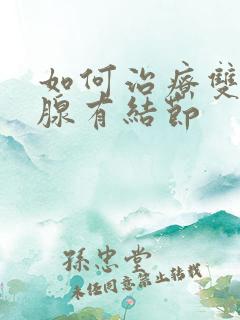 如何治療雙
腺有結節
孫忠堂
未经同意禁止转载